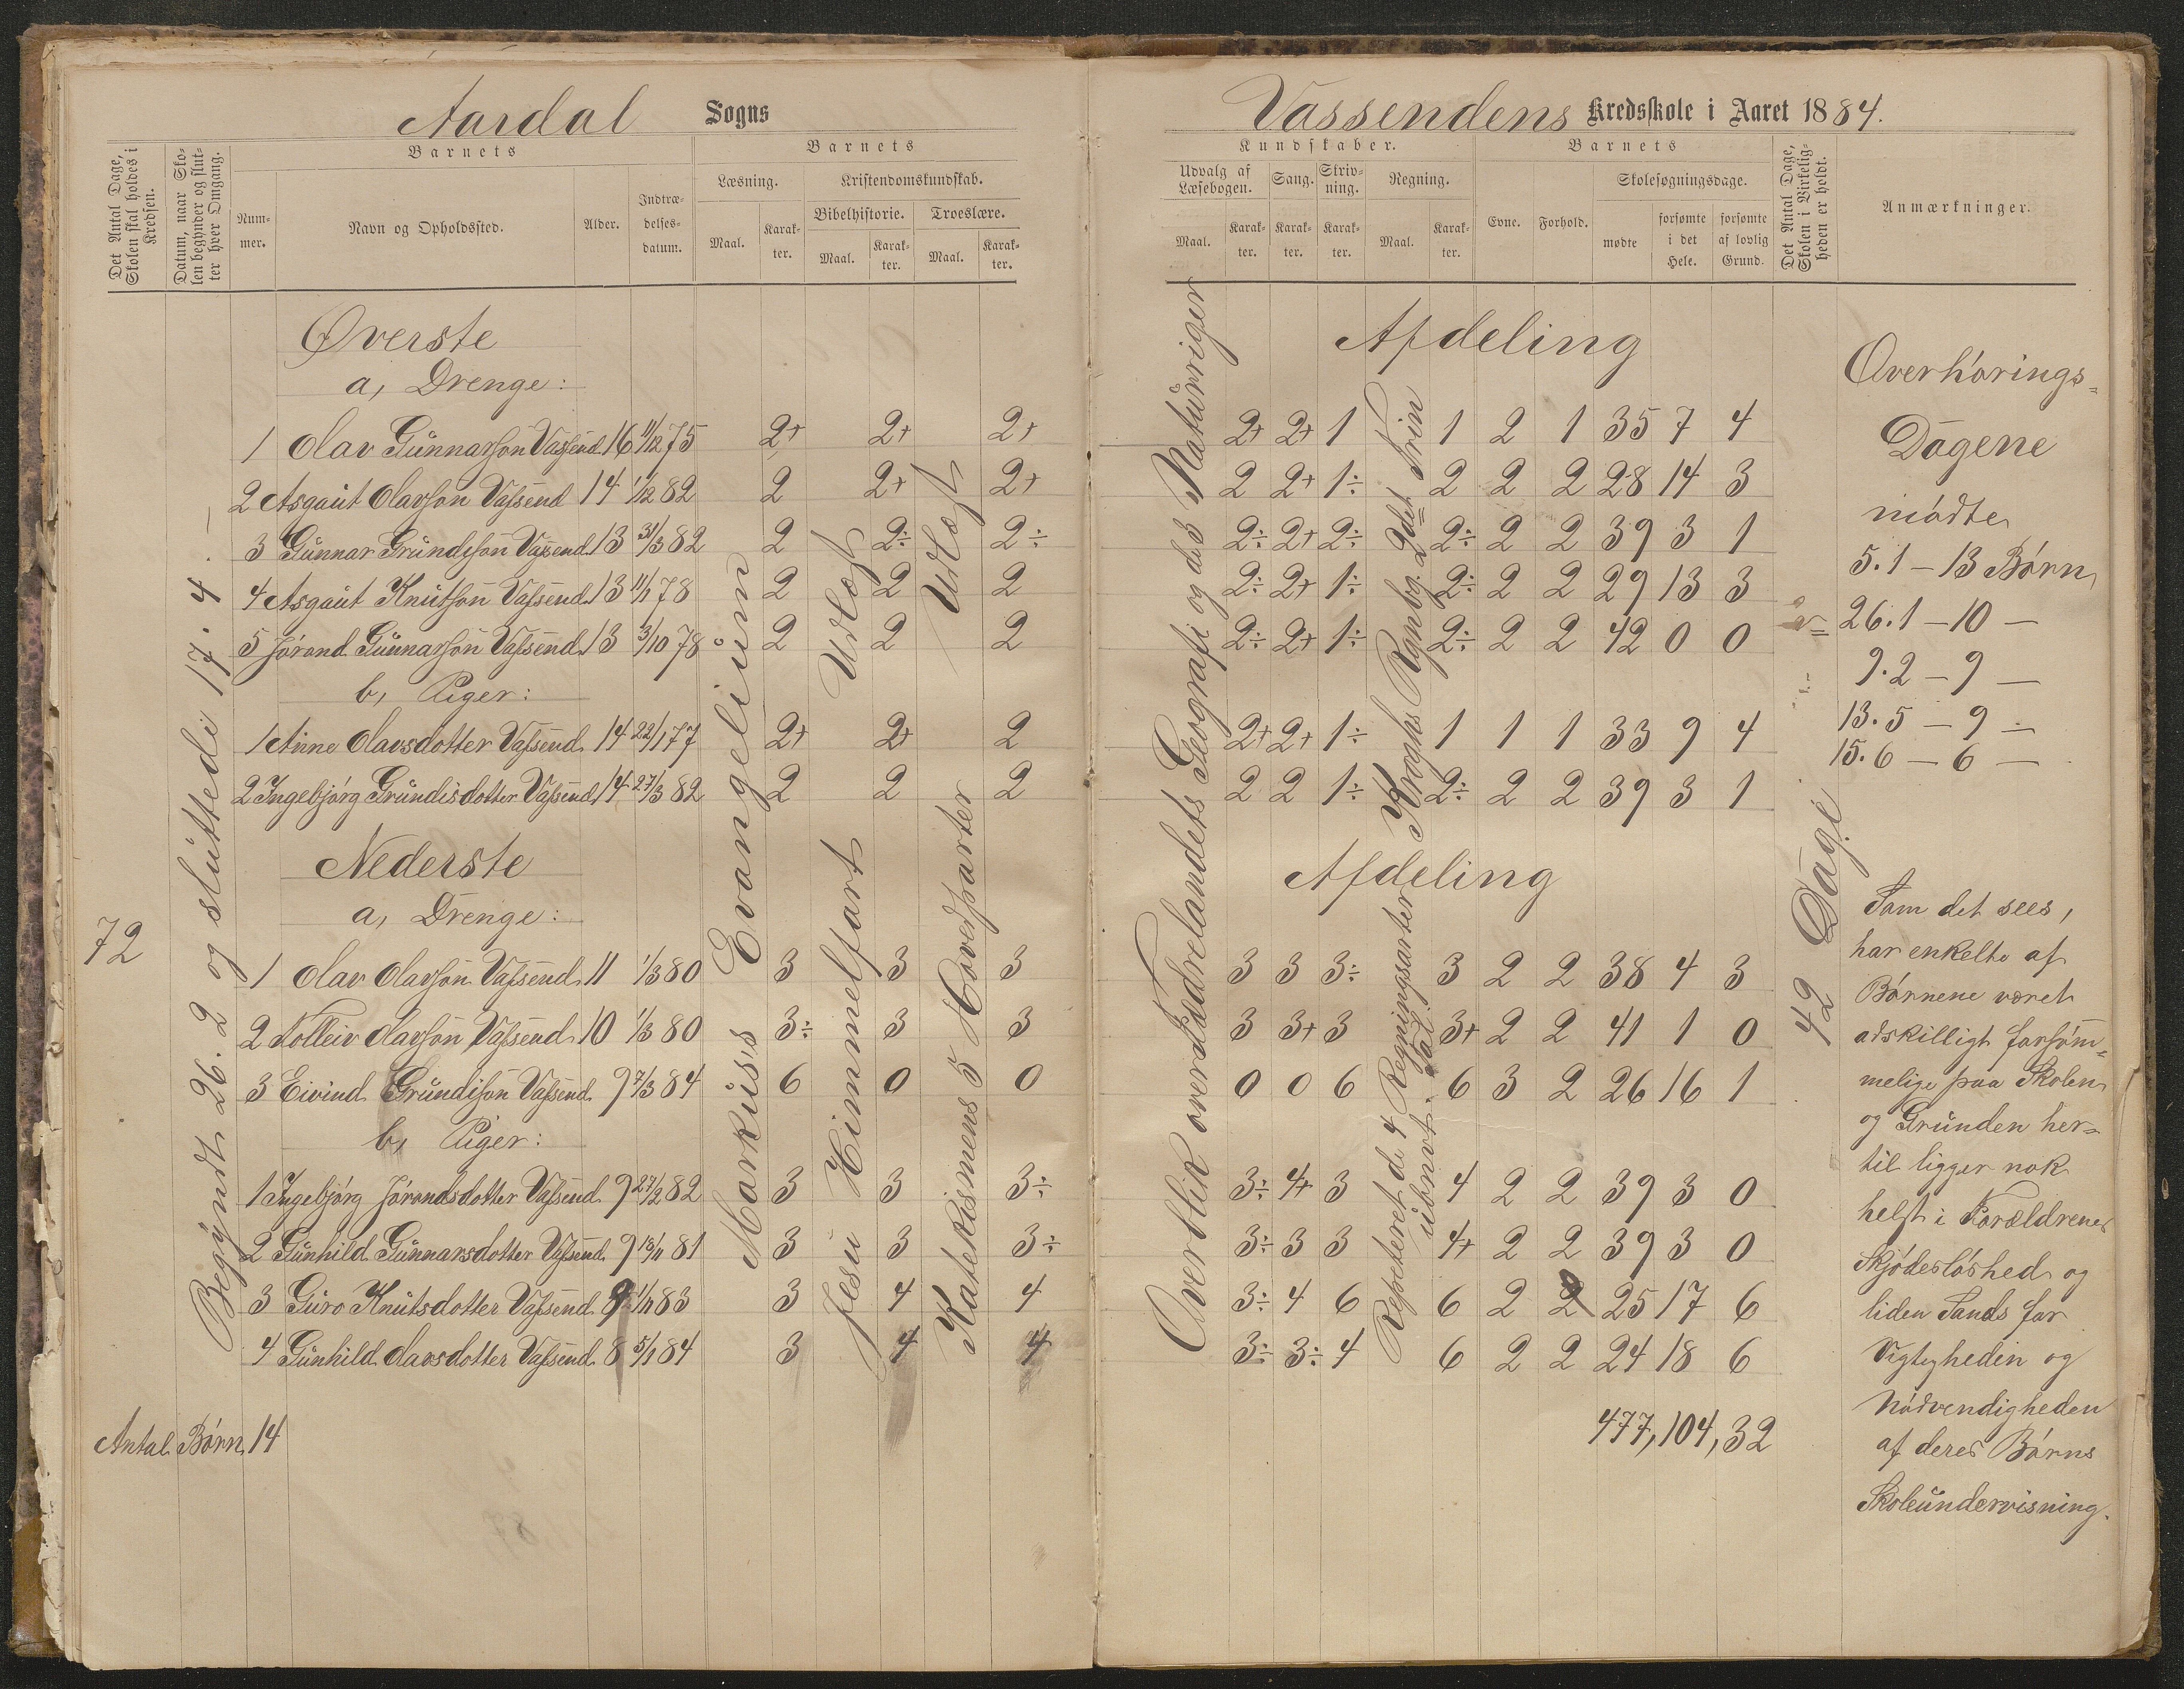 Aardal Sogns
Det Antal Dage, Skolen skal holdes i Kredsen.
Datum, naar Skolen begynder og slutter hver Omgang.
Barnets
Nummer.
Navn og Opholdssted.
Alder.
Indtrædelsesdatum.
Barnets
Læsning.
Kristendomskundskab.
Maal.
Karakter.
Bibelhistorie.
Troeslære.
Maal.
Karakter.
Maal.
Karakter.
Øverste
a, Drenge:
1 Olav Gunnarson Vassend 16 11/12 75 2+ 2+ 2+
2 Asgaut Olavson Vassend 14 1/12 82 2 2+ 2+
3 Gunnar Grundison Vassend 13 31/3 82 2 2÷ 2÷
4 Asgaut Knutson Vassend 13 11/1 78 2 2 2
5 Jórand Gunnarson Vassend 13 3/10 78 2 2 2
b, Piger:
1 Anne Olavsdotter Vassend 14 22/1 77 2+ 2+ 2
2 Ingebjórg Grundisdotter Vassend 14 27/3 82 2 2 2
Nederste
a, Drenge:
1 Olav Olavson Vassend 11 1/3 80 3 3 3
2 Tolleiv Olavson Vassend 10 1/3 80 3÷ 3 3
3 Eivind Grundison Vassend 9 7/3 84 6 0 0
b, Piger:
1 Ingebjórg Jórandsdotter Vassend 9 27/2 82 3 3 3÷
2 Gunhild Gunnarsdotter Vassend 9 18/11 81 3 3 3÷
3 Guro Knutsdotter Vassend 9 1/11 83 3 4 4
4 Gunhild Olavsdotter Vassend 8 5/1 84 3 4 4
72
Begyndt 26. 2 og sluttedi 17. 4. —
Markus's Evangelium
Udlæst
Jesu Himmelfart
Udlæst
Katekismens 5 Hovedparter
Antal Børn 14
Vassendens Kredsskole i Aaret 1884.
Kundskaber.
Udvalg af Læsebogen.
Sang.
Skrivning.
Regning.
Maal.
Karakter.
Karakter.
Karakter.
Maal.
Karakter.
Barnets
Evne.
Forhold.
Skolesøgningsdage.
mødte
forsømte i det Hele.
forsømte af lovlig Grund.
Det Antal Dage, Skolen i Virkeligheden er holdt.
Anmærkninger.
Afdeling
2+ 2+ 1 1 2 1 35 7 4
2 2+ 1÷ 2 2 2 28 14 3
2÷ 2+ 2÷ 2÷ 2 2 39 3 1
2÷ 2+ 1÷ 2÷ 2 2 29 13 3
2÷ 2+ 1÷ 2÷ 2 2 42 0 0
2+ 2+ 1÷ 1 1 1 33 9 4
2 2 1÷ 2÷ 2 2 39 3 1
Afdeling
3 3 3÷ 3 2 2 38 4 3
3 3+ 3 3+ 2 2 41 1 0
0 0 6 6 3 2 26 16 1
3÷ 4+ 3 4 2 2 39 3 0
3÷ 3 3 4+ 2 2 39 3 0
3÷ 4 6 6 2 2 25 17 6
3÷ 3÷ 4 6 2 2 24 18 6
477, 104, 32
Overblik over Fædrelandets Geografi og det 3 Naturriger
Kroghs Rgnbg. 2det Trin
Repeteret de 4 Regningsarter
ubnvt. Tal.
42 Dage
Overhórings=
Dagene
mødte
5.1 — 13 Børn
26.1 — 10 —
9.2 — 9 —
13.5 — 9 —
15.6 — 6 —
Som det sees,
har enkelte af
Børnene været
adskilligt forsøm=
melige paa Skolen
og Grunden her=
til ligger nok
helst i Forældrenes
Skjødesløshed og
liden Sands for
Vigtigheden og
Nødvendigheden
af deres Børns
Skoleundervisning.